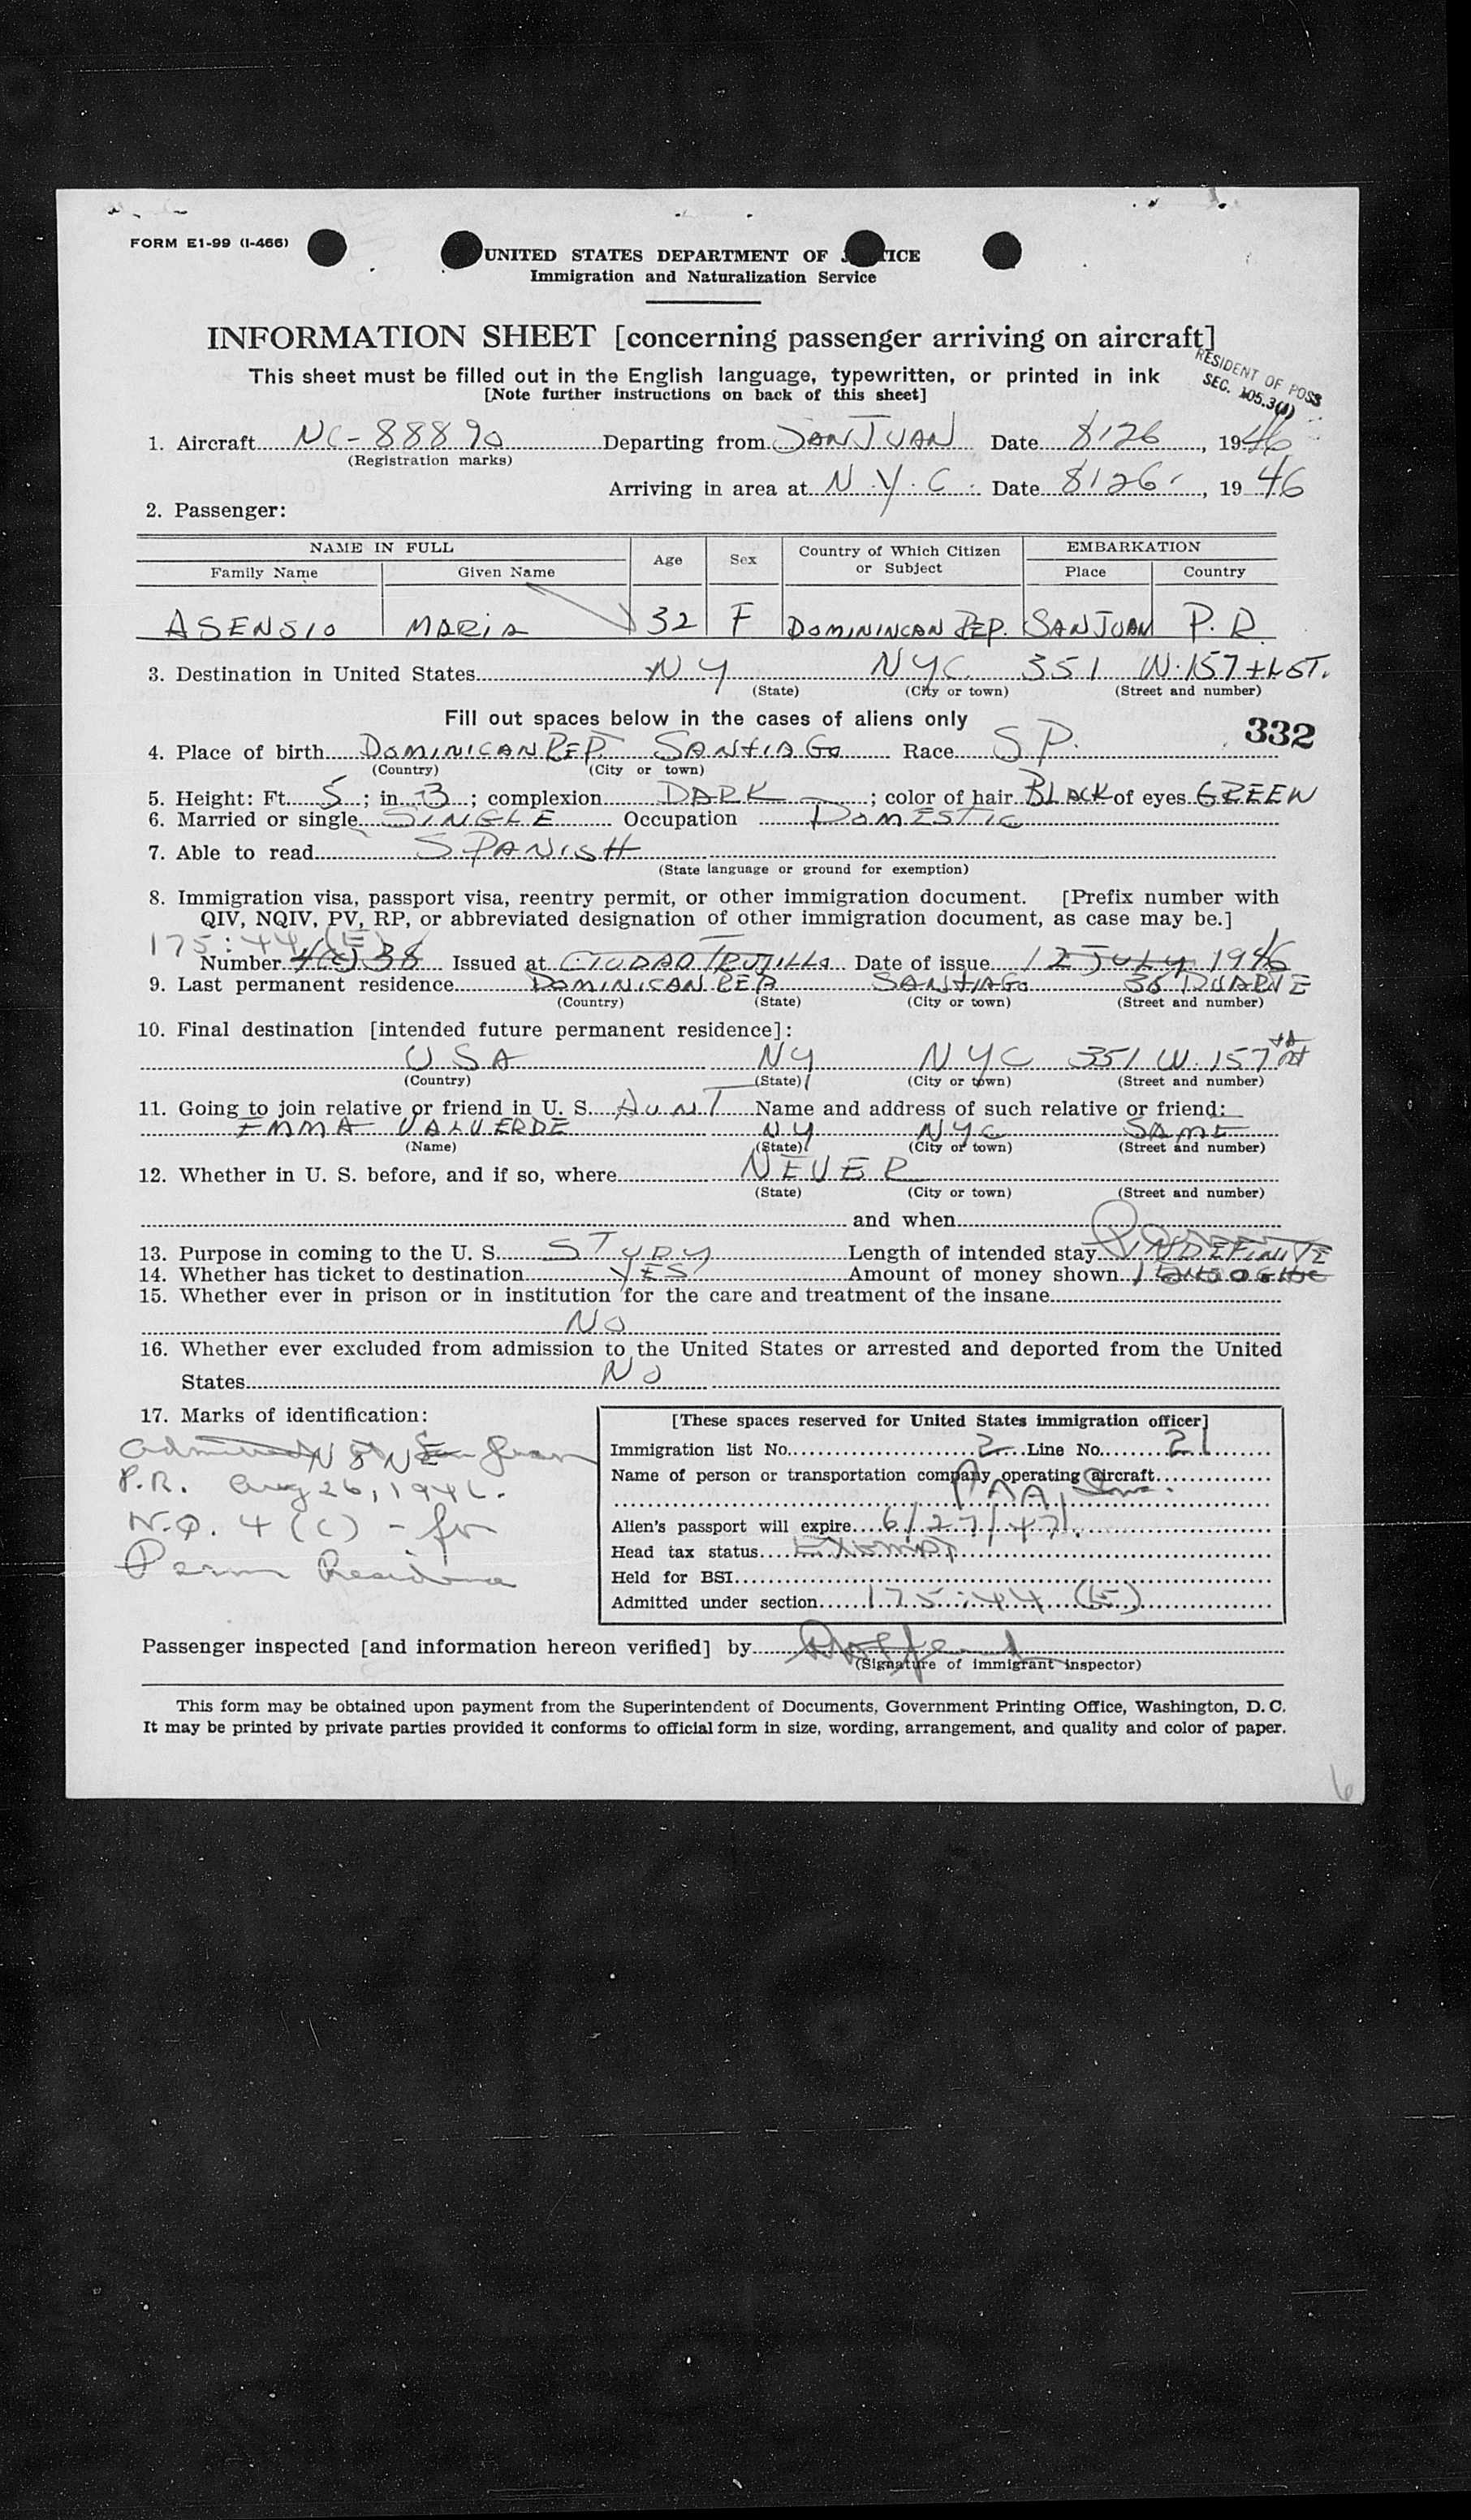 FORM E1-99 (I-466)
UNITED STATES DEPARTMENT OF J TICE
Immigration and Naturalization Service
INFORMATION SHEET [concerning passenger arriving on aircraft]
RESIDENT OF POSS
SEC. 105.3(1)
This sheet must be filled out in the English language, typewritten, or printed in ink
[Note further instructions on back of this sheet]
1. Aircraft NC-88890 Departing from SAN JUAN Date 8/26, 1946
(Registration marks)
Arriving in area at N.Y.C. Date 8/26, 1946
2. Passenger:
NAME IN FULL Age Sex Country of Which Citizen or Subject EMBARKATION
Family Name Given Name Place Country
ASENSIO MARIA 32 F DOMININCAN REP. SAN JUAN P.R.
3. Destination in United States NY NYC 351 W. 157th ST.
(State) (City or town) (Street and number)
Fill out spaces below in the cases of aliens only
332
4. Place of birth DOMINICAN REP. SANTIAGO Race SP.
(Country) (City or town)
5. Height: Ft. 5; in. 3; complexion DARK; color of hair BLACK of eyes GREEN
6. Married or single SINGLE Occupation DOMESTIC
7. Able to read SPANISH
(State language or ground for exemption)
8. Immigration visa, passport visa, reentry permit, or other immigration document. [Prefix number with
QIV, NQIV, PV, RP, or abbreviated designation of other immigration document, as case may be.]
175:44 (E)
Number 4(c) 38 Issued at CIUDAD TRUJILLO Date of issue 12 JULY 1946
9. Last permanent residence DOMINICAN REP SANTIAGO 36 DUARTE
(Country) (State) (City or town) (Street and number)
10. Final destination [intended future permanent residence]:
USA NY NYC 351 W. 157th St
(Country) (State) (City or town) (Street and number)
11. Going to join relative or friend in U. S. AUNT Name and address of such relative or friend:
EMMA VALVERDE NY NYC SAME
(Name) (State) (City or town) (Street and number)
12. Whether in U. S. before, and if so, where NEVER
(State) (City or town) (Street and number)
and when
13. Purpose in coming to the U. S. STUDY Length of intended stay INDEFINITE
14. Whether has ticket to destination YES Amount of money shown
15. Whether ever in prison or in institution for the care and treatment of the insane
NO
16. Whether ever excluded from admission to the United States or arrested and deported from the United
States NO
17. Marks of identification:
NONE
Admitted San Juan
P.R. Aug 26, 1946.
N.Q. 4(c) - for
Perm Residence
[These spaces reserved for United States immigration officer]
Immigration list No. 2 Line No. 21
Name of person or transportation company operating aircraft
PAA Inc.
Alien's passport will expire 6/27/47.
Head tax status Exempt
Held for BSI
Admitted under section 175:44 (E)
Passenger inspected [and information hereon verified] by
(Signature of immigrant inspector)
This form may be obtained upon payment from the Superintendent of Documents, Government Printing Office, Washington, D. C.
It may be printed by private parties provided it conforms to official form in size, wording, arrangement, and quality and color of paper.
6